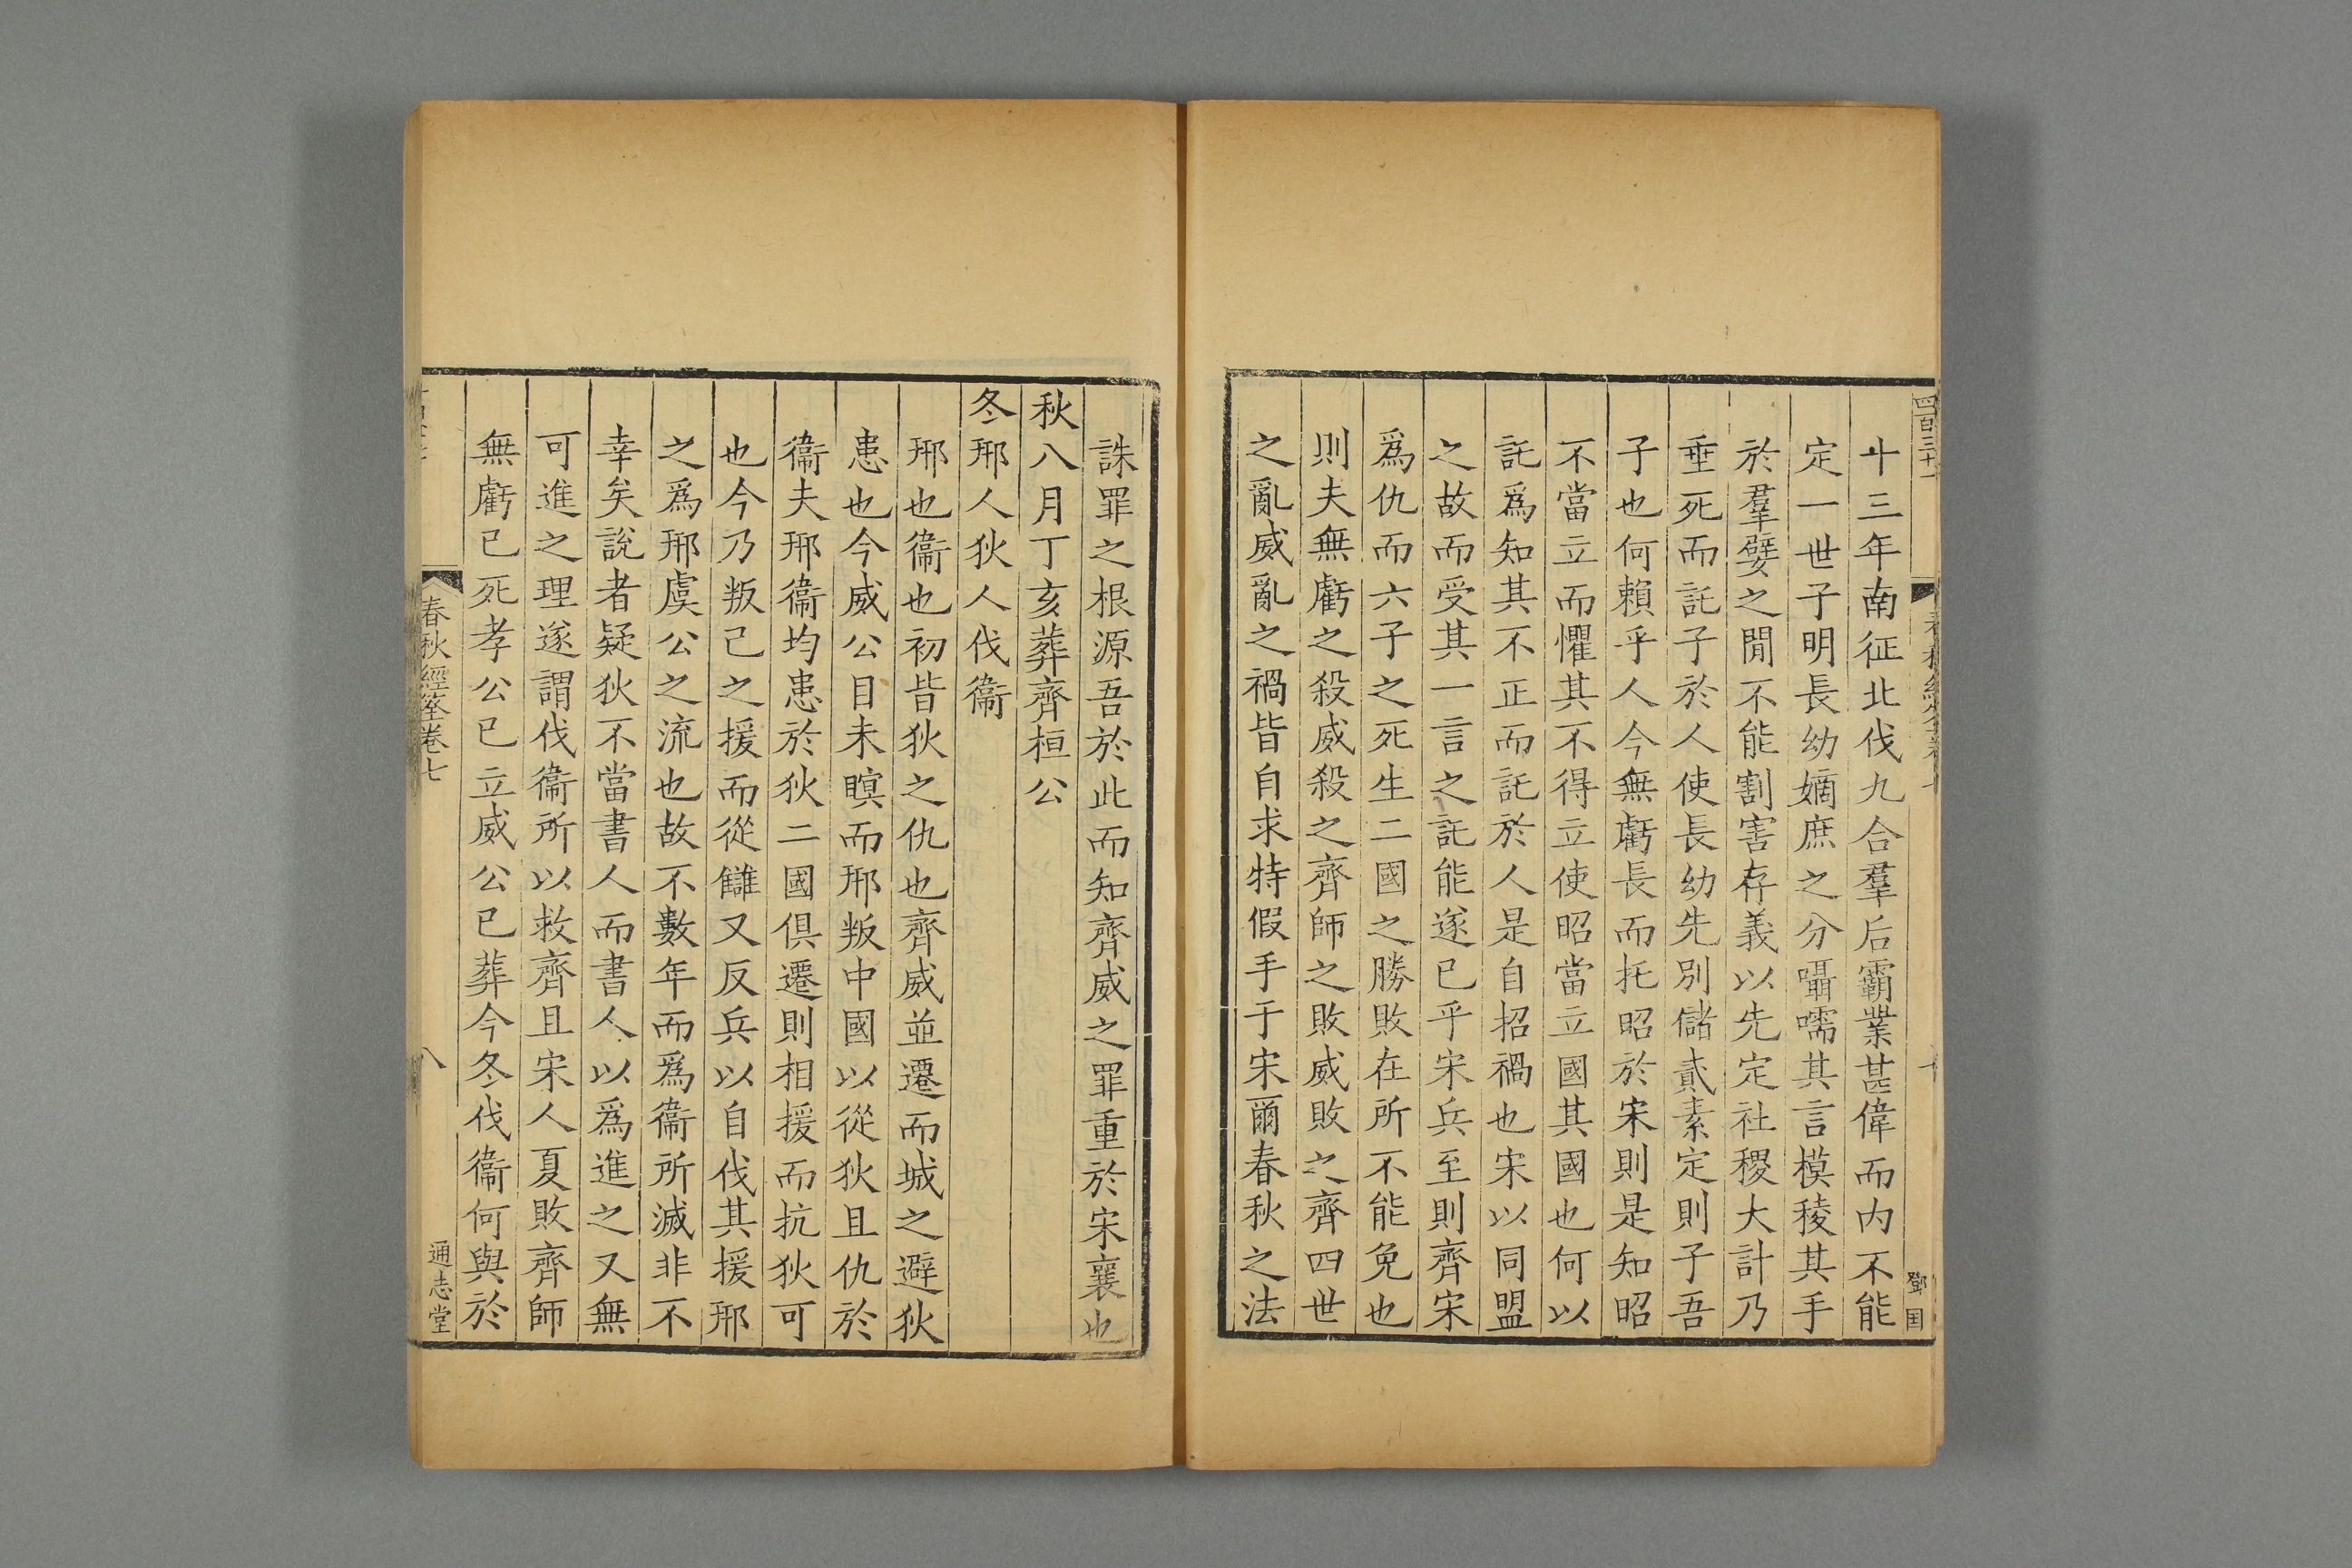 四百三十一
鄧国
卄三年南征北伐九合羣后霸業甚偉而内不能
定一世子明長幼嫡庶之分囁嚅其言模稜其手
於羣嬖之閒不能割害存義以先定社稷大計乃
垂死而託子於人使長幼先別儲貳素定則子吾
子也何賴乎人今無虧長而托昭於宋則是知昭
不當立而懼其不得立使昭當立國其國也何以
託爲知其不正而託於人是自招禍也宋以同盟
之故而受其一言之託能遂已乎宋兵至則齊宋
爲仇而六子之死生二國之勝敗在所不能免也
則夫無虧之殺威殺之齊師之敗威敗之齊四世
之亂威亂之禍皆自求特假手于宋爾春秋之法
誅罪之根源吾於此而知齊威之罪重於宋襄也
秋八月丁亥葬齊桓公
冬邢人狄人伐衞
邢也衞也初皆狄之仇也齊威並遷而城之避狄
患也今威公目未瞑而邢叛中國以從狄且仇於
衞夫邢衞均患於狄二國俱遷則相援而抗狄可
也今乃叛己之援而從讎又反兵以自伐其援邢
之爲邢虞公之流也故不數年而爲衞所滅非不
幸矣說者疑狄不當書人而書人以爲進之又無
可進之理遂謂伐衞所以救齊且宋人夏敗齊師
無虧已死孝公已立威公已葬今冬伐衞何與於
春秋經筌卷七
八
通志堂